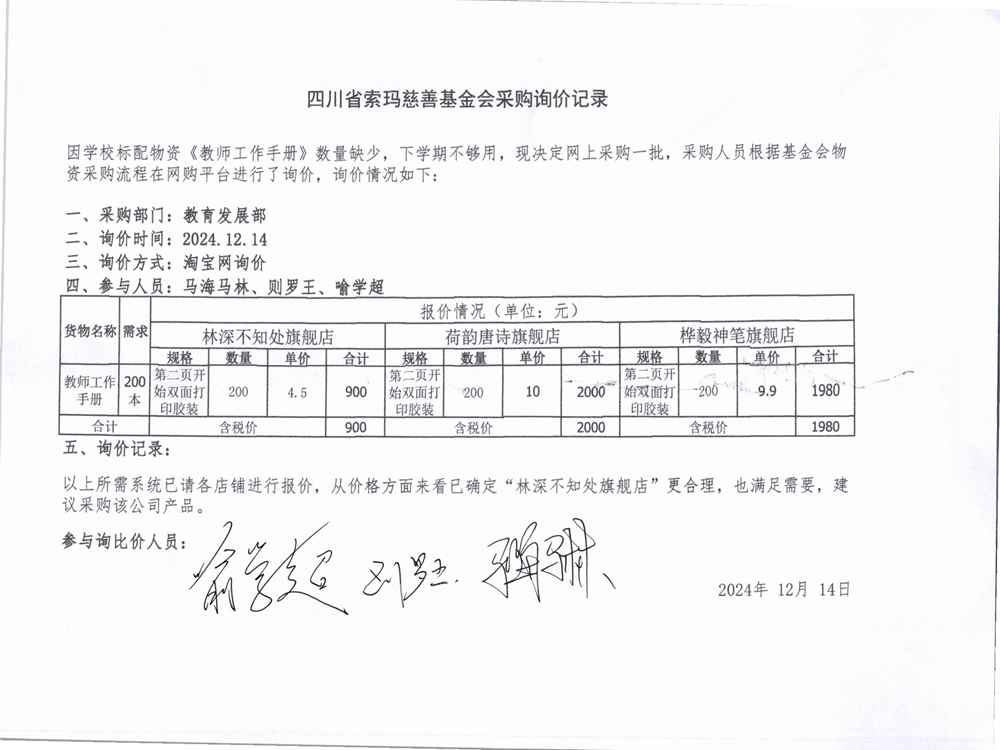 四川省索玛慈善基金会采购询价记录
因学校标配物资《教师工作手册》数量缺少，下学期不够用，现决定网上采购一批，采购人员根据基金会物
资采购流程在网购平台进行了询价，询价情况如下：
一、采购部门：教育发展部
二、询价时间：2024.12.14
三、询价方式：淘宝网询价
四、参与人员：马海马林、则罗王、喻学超
货物名称 需求 报价情况（单位：元）
林深不知处旗舰店 荷韵唐诗旗舰店 桦毅神笔旗舰店
规格 数量 单价 合计 规格 数量 单价 合计 规格 数量 单价 合计
教师工作 200 第二页开 第二页开 第二页开
手册 本 始双面打 200 4.5 900 始双面打 200 10 2000 始双面打 200 9.9 1980
印胶装 印胶装 印胶装
合计 含税价 900 含税价 2000 含税价 1980
五、询价记录：
以上所需系统已请各店铺进行报价，从价格方面来看已确定“林深不知处旗舰店”更合理，也满足需要，建
议采购该公司产品。
参与询比价人员：
喻学超
2024年 12月 14日